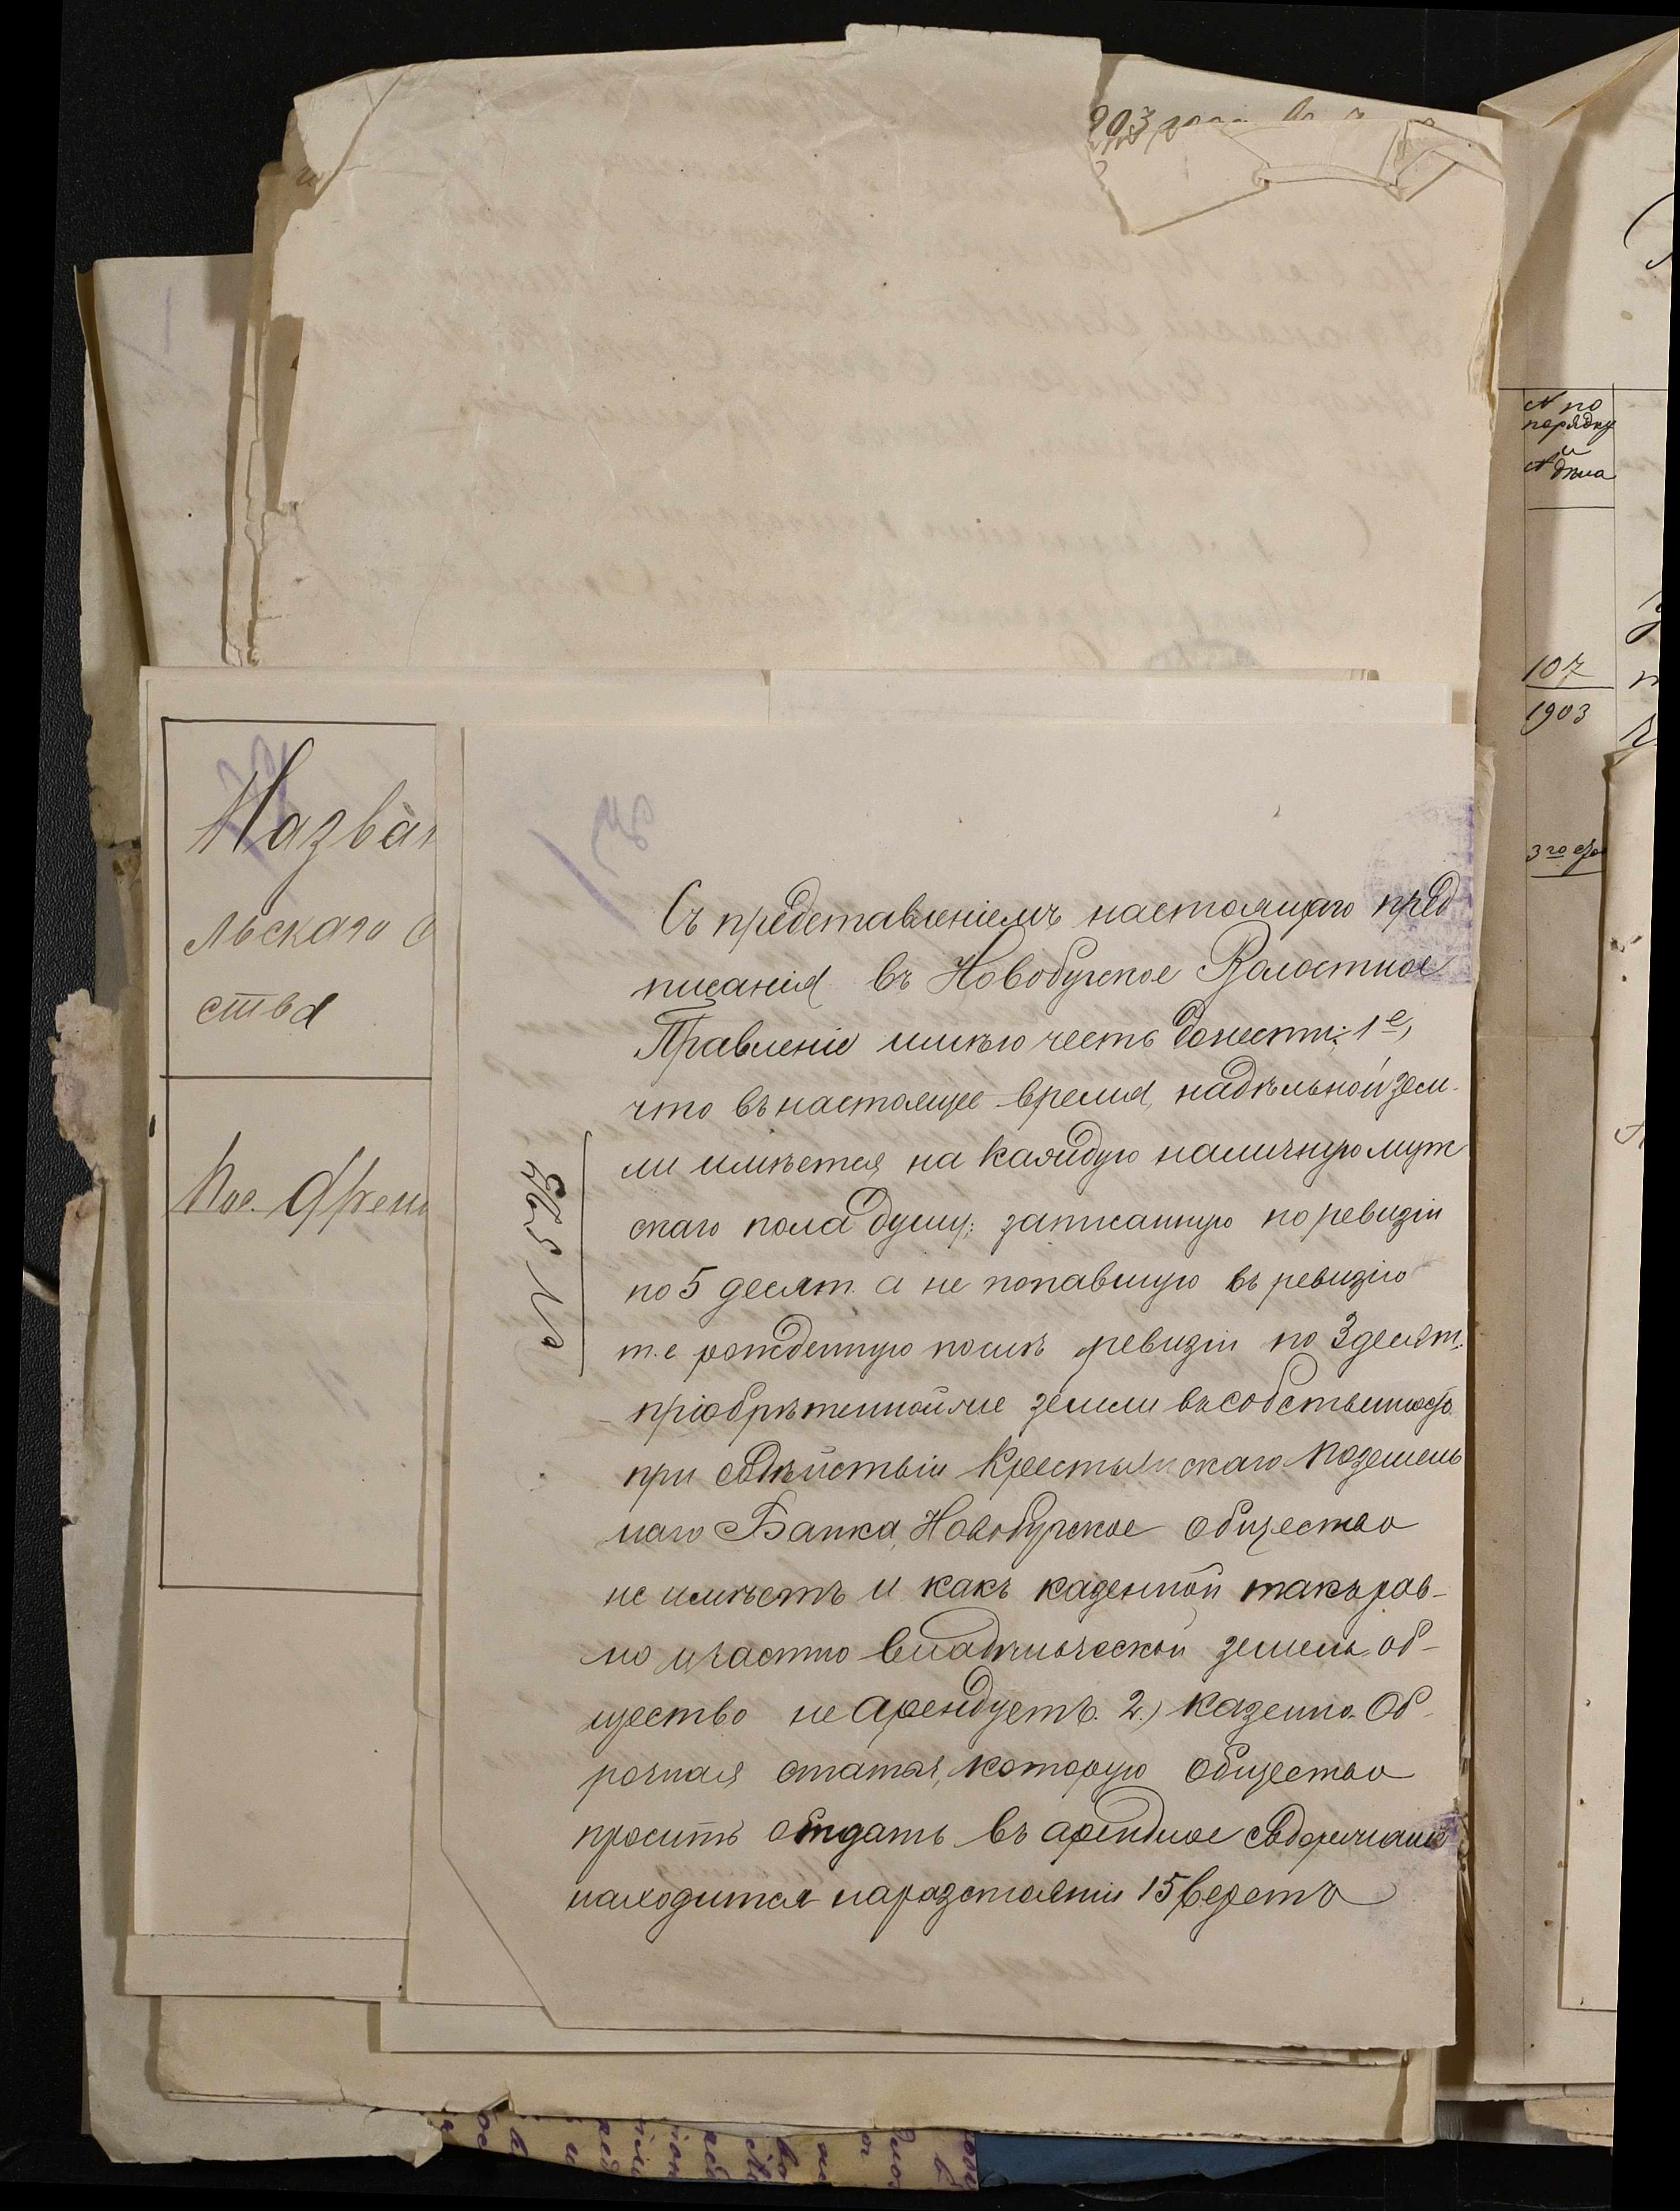 903
Назван
льскаго О
ства
Съ представленіемъ настоящаго пред
писанія въ Новобугское Волостное
Правленіе имѣю честь донести: 1е,
что въ настоящее время, надѣльной зем-
ли имѣется на каждую наличную муж
скаго пола душу: записанную по ревизіи
по 5 десят. а не попавшую въ ревизію
т.е рожденную послѣ ревизіи по 3 десят.
пріобрѣтенной же земли въ собственность
при содѣйствіи Крестьянскаго Поземель
наго Банка, Новобугское общество
не имѣетъ и какъ казенной такъ рав-
но и частно владѣльческой земель об-
щество не арендуетъ. 2.) Казенно-Об-
рочная статья, которую общество
проситъ отдать въ арендное содержаніе
находится на разстояніи 15 верстъ
№ 595
№ по
порядку
и
№ дѣла
107
1903
3го